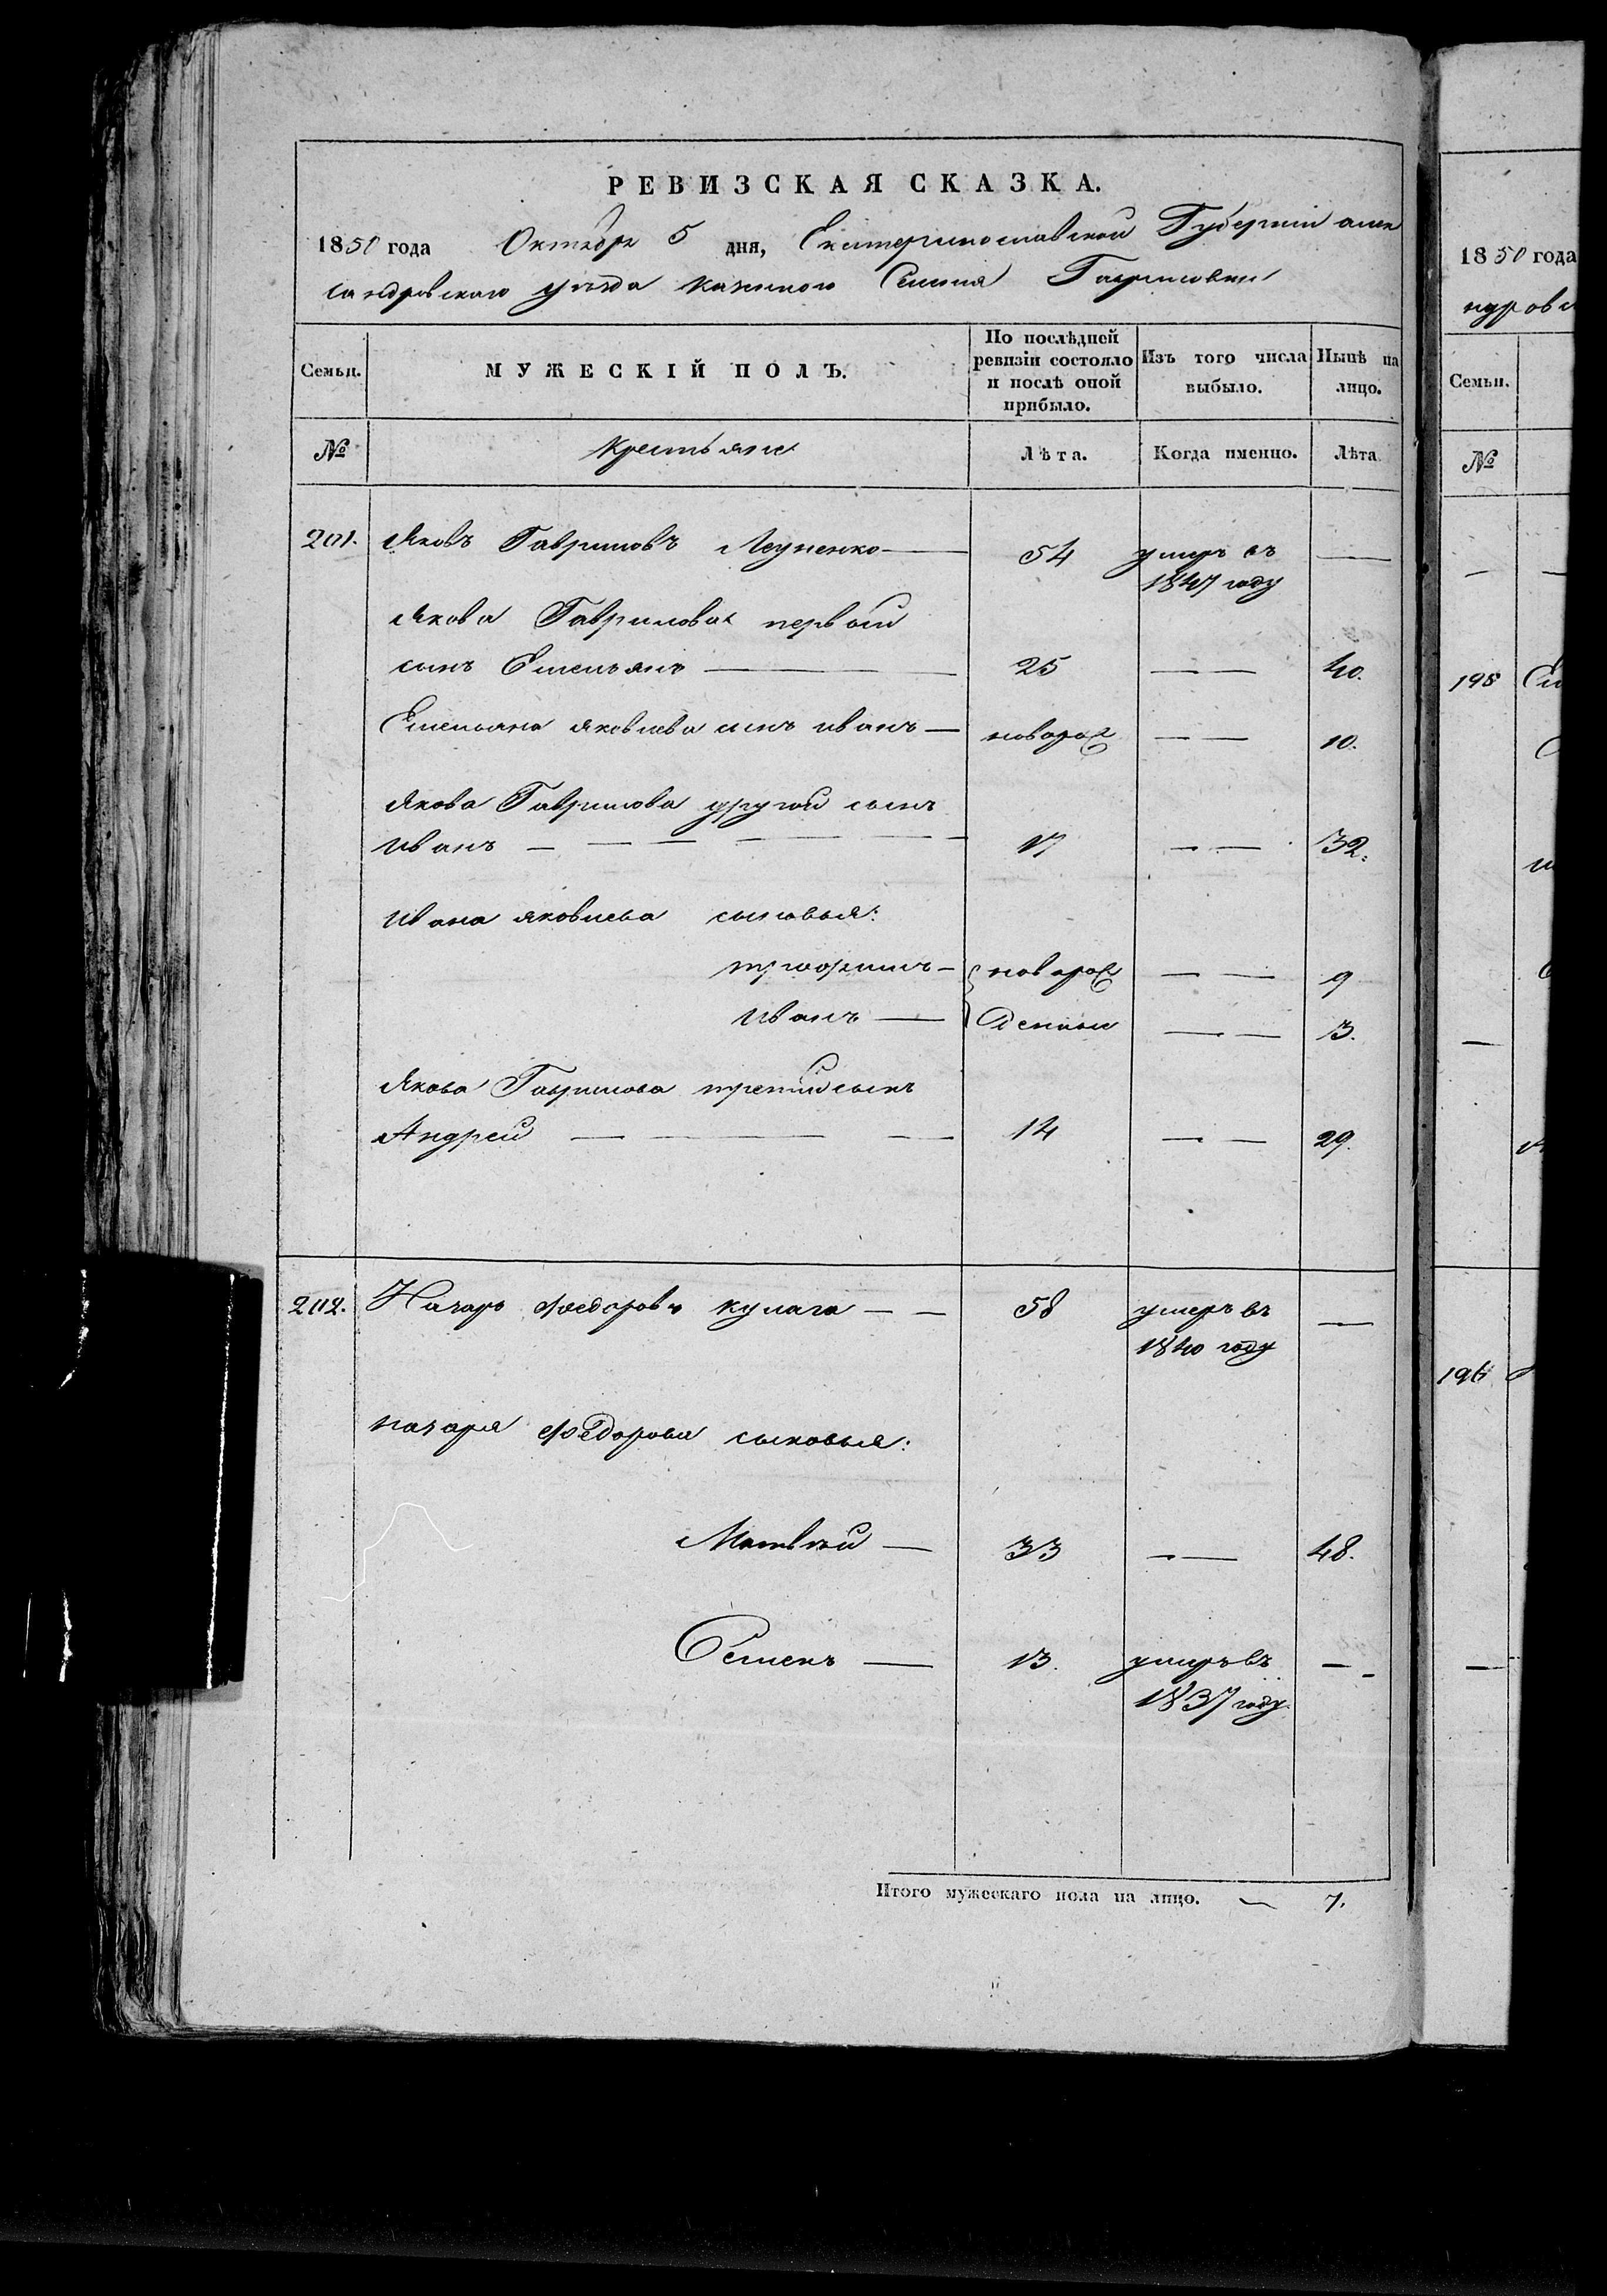 РЕВИЗСКАЯ СКАЗКА.
1850 года Октября 5 дня, Екатеринославской Губерніи алек
сандровскаго уѣзда казеннаго Селенія Гавриловки
Семьи. МУЖЕСКІЙ ПОЛЪ. По послѣдней ревизіи состояло и послѣ оной прибыло. Изъ того числа выбыло. Нынѣ на лицо.
№ Крестьяне Лѣта. Когда именно. Лѣта
201. Яковъ Гавриловъ 54 умеръ въ —
1847 году
Якова Гаврилова первый
сынъ Емельянъ — 25 — 40.
Емельяна яковлева сынъ иванъ — новорож — 10.
Якова Гаврилова другой сынъ
иванъ — 17 — 32.
ивана яковлева сыновья:
новорож — 9
иванъ — 3.
Якова Гаврилова третій сынъ
Андрей — 14 — 29.
202. Назаръ федоровъ кулага — 58 умеръ въ —
1840 году
назара федорова сыновья:
Матвѣй — 33 — 48.
Семенъ — 13. умеръ въ —
1837 году.
Итого мужескаго пола на лицо. — 7.
1850 года
ндровс
Семьи.
№
195
196